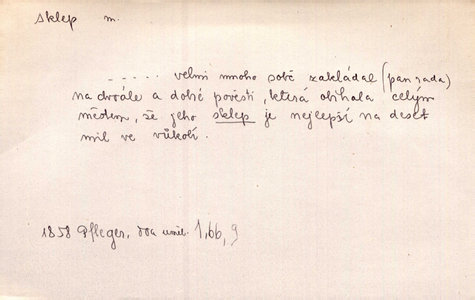 sklep m.
..... velmi mnoho sobě zakládal (pan rada)
na chvále a dobré pověsti, která obíhala celým
městem, že jeho sklep je nejlepší na deset
mil ve vůkolí.
1858 Pfleger, Dva uměl. 1,66,9